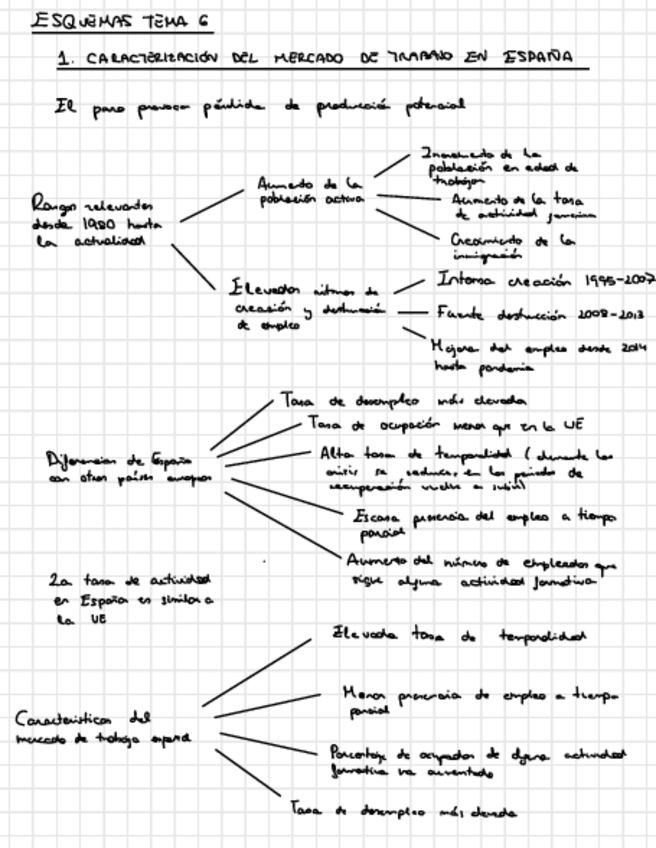 ESQUEMAS TEMA 6
1. CARACTERIZACIÓN DEL MERCADO DE TRABAJO EN ESPAÑA
El paro provoca pérdida de producción potencial
Rasgos relevantes
desde 1980 hasta
la actualidad
Aumento de la
población activa
Incremento de la
población en edad de
trabajar
Aumento de la tasa
de actividad femenina
Crecimiento de la
inmigración
Elevados ritmos de
creación y destrucción
de empleo
Intensa creación 1995-2007
Fuerte destrucción 2008-2013
Mejora del empleo desde 2014
hasta pandemia
Diferencias de España
con otros países europeos
Tasa de desempleo más elevada
Tasa de ocupación menor que en la UE
Alta tasa de temporalidad (durante las
crisis se reduce, en los periodos de
recuperación vuelve a subir)
Escasa presencia del empleo a tiempo
parcial
Aumento del número de empleados que
sigue alguna actividad formativa
La tasa de actividad
en España es similar a
la UE
Características del
mercado de trabajo español
Elevada tasa de temporalidad
Menor presencia de empleo a tiempo
parcial
Porcentaje de ocupados de alguna actividad
formativa ha aumentado
Tasa de desempleo más elevada